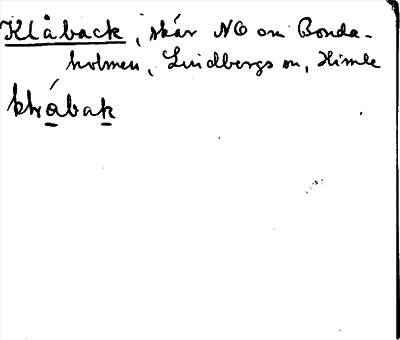 Klåback, skär NO om Bonda-
holmen, Lindbergs sn, Himle
klrábak